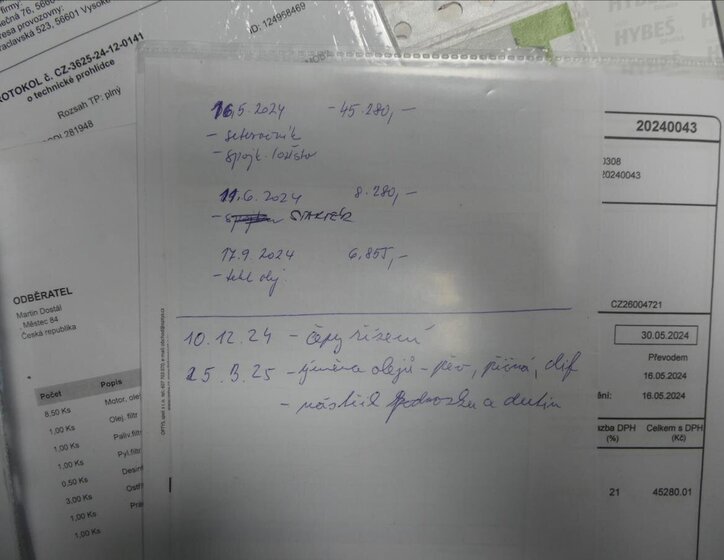 firmy:
75, 566
resa provozovny:
raclavská 523, 56601 Vysoké
ID: 124958469
PROTOKOL č. CZ-3625-24-12-0141
o technické prohlídce
Rozsah TP: plný
281948
HYBEŠ
HYBEŠ
16.5.2024 - 45.280,-
- setrvačník
- spojk. ložisko
11.6.2024 8.280,-
- STARTÉR
17.9.2024 6.855,-
- olej
10.12.24 - čepy řízení
25.3.25 - výměna olejů - přev, příčná, dif
- nástřik podvozku a dutin
20240043
0308
20240043
CZ26004721
30.05.2024
Převodem
16.05.2024
ění: 16.05.2024
azba DPH Celkem s DPH
(%) (Kč)
21 45280.01
ODBĚRATEL
Martin Dostál
Městec 84
Česká republika
Počet Popis
8,50 Ks Motor, olej
1,00 Ks Olej. filtr
1,00 Ks Paliv.filtr
1,00 Ks Pyl.filtr
0,50 Ks Desin
3,00 Ks Ostř
1,00 Ks Prá
1,00 Ks